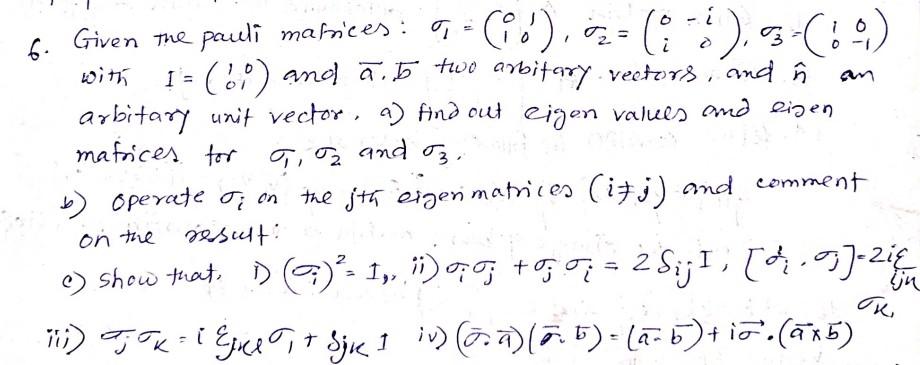 6. Given the pauli matrices: σ₁ = (0 1 / 1 0), σ₂ = (0 -i / i 0), σ₃ = (1 0 / 0 -1)
with I = (1 0 / 0 1) and a̅, b̅ two arbitary vectors, and n̂ an
arbitary unit vector. a) find out eigen values and eigen
matrices for σ₁, σ₂ and σ₃.
b) operate σᵢ on the jth eigen matrices (i≠j) and comment
on the result:
c) show that, i) (σᵢ)² = I,, ii) σᵢσⱼ + σⱼσᵢ = 2δᵢⱼI; [σᵢ, σⱼ] = 2iε_ijk
σₖ,
iii) σⱼσₖ = i ε_jkl σₗ + δ_jk I iv) (σ̅.a̅)(σ̅.b̅) = (a̅.b̅) + iσ⃗.(a̅×b̅)